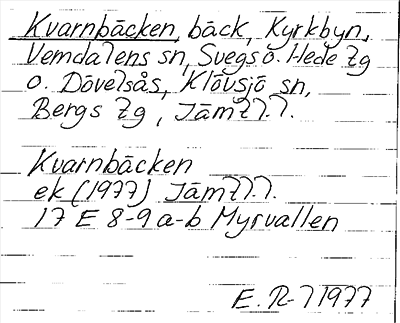 Kvarnbäcken, bäck, Kyrkbyn,
Vemdalens sn, Svegs o. Hede tg
o. Dövelsås, Klövsjö sn,
Bergs tg, Jämtl.l.
Kvarnbäcken
ek (1977) Jämtl.l.
17 E 8-9 a-b Myrvallen
E. R-7 1977